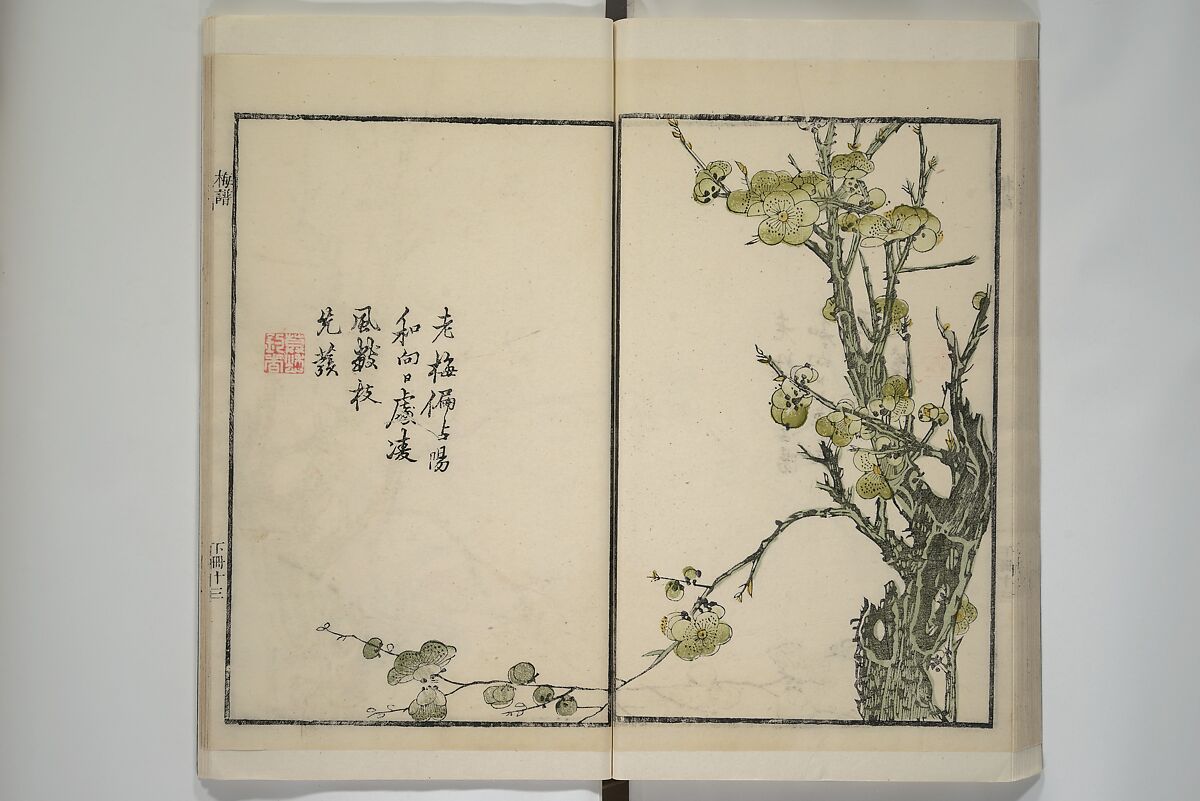 老梅偏占陽
和向日處凌
風數枝
先發
梅譜
下冊十三